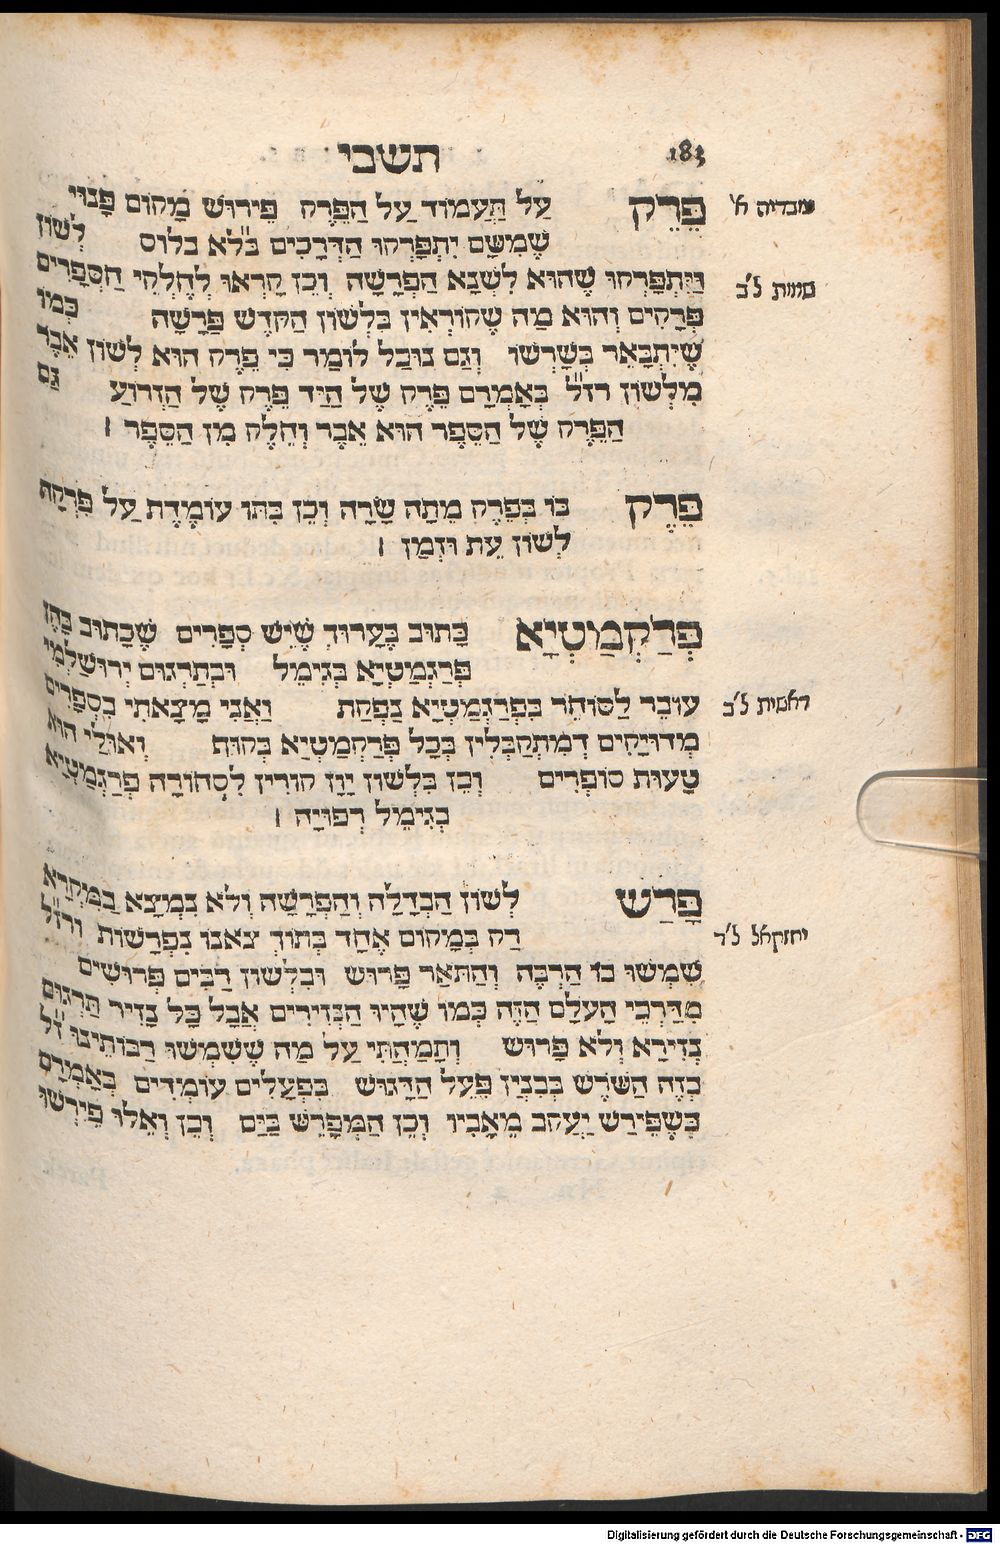 183 תשבי
עובדיה א׳
פֶּרֶק עַל תַּעֲמוֹד עַל הַפֶּרֶק פֵּירוּשׁ מָקוֹם פָּנוּי
שֶׁמִּשָּׁם יִתְפָּרְקוּ הַדְּרָכִים בְּלֹא בלוס לְשׁוֹן
שמות ל״ב
וַיִּתְפָּרְקוּ שֶׁהוּא לִשְׁנָא הַפְרָשָׁה וְכֵן קָרְאוּ לְחֶלְקֵי הַסְּפָרִים
פְּרָקִים וְהוּא מַה שֶּׁקּוֹרְאִין בִּלְשׁוֹן הַקֹּדֶשׁ פָּרָשָׁה כְּמוֹ
שֶׁיִּתְבָּאֵר בְּשָׁרְשׁוֹ וְגַם נוּכַל לוֹמַר כִּי פֶּרֶק הוּא לְשׁוֹן אֵבֶר
מִלְּשׁוֹן רז״ל בְּאָמְרָם פֶּרֶק שֶׁל הַיָּד פֶּרֶק שֶׁל הַזְּרוֹעַ גַּם
הַפֶּרֶק שֶׁל הַסֵּפֶר הוּא אֵבֶר וְחֵלֶק מִן הַסֵּפֶר ׃
פֶּרֶק בּוֹ בְּפֶרֶק מֵתָה שָׂרָה וְכֵן בִּתּוֹ עוֹמֶדֶת עַל פִּרְקָהּ
לְשׁוֹן עֵת וּזְמַן ׃
פְּרַקְמַטְיָא כָּתוּב בֶּעָרוּךְ שֶׁיֵּשׁ סְפָרִים שֶׁכָּתוּב בָּהֶן
פְּרַגְמַטְיָא בְּגִימֶל וּבְתַרְגּוּם יְרוּשַׁלְמִי
בראשית ל״ב
עוֹבֵר לַסּוֹחֵר בִּפְרַגְמַטְיָא נַפְקַת וַאֲנִי מָצָאתִי בִּסְפָרִים
מְדוּיָּקִים דְּמִתְקַבְּלִין בְּכָל פְּרַקְמַטְיָא בְּקוּף וְאוּלַי הוּא
טָעוּת סוֹפְרִים וְכֵן בִּלְשׁוֹן יָוָן קוֹרִין לִסְחוֹרָה פְּרַגְמַטְיָא
בְּגִימֶל רְפוּיָה ׃
פָּרַשׁ לְשׁוֹן הַבְדָּלָה וְהַפְרָשָׁה וְלֹא נִמְצָא בַּמִּקְרָא
יחזקאל ל״ד
רַק בְּמָקוֹם אֶחָד בְּתוֹךְ צֹאנוֹ נִפְרָשׁוֹת וְרז״ל
שִׁמְּשׁוּ בּוֹ הַרְבֵּה וְהַתֹּאַר פָּרוּשׁ וּבִלְשׁוֹן רַבִּים פְּרוּשִׁים
מִדַּרְכֵי הָעוֹלָם הַזֶּה כְּמוֹ שֶׁהָיוּ הַנְּזִירִים אֲבָל כָּל נָזִיר תַּרְגּוּם
נְזִירָא וְלֹא פָּרוּשׁ וְתָמַהְתִּי עַל מַה שֶּׁשִּׁמְּשׁוּ רַבּוֹתֵינוּ ז״ל
בְּזֶה הַשֹּׁרֶשׁ בְּבִנְיַן פִּעֵל הַדָּגוּשׁ בִּפְעָלִים עוֹמְדִים בְּאָמְרָם
כְּשֶׁפֵּירַשׁ יַעֲקֹב מֵאָבִיו וְכֵן הַמְּפָרֵשׁ בַּיָּם וְכֵן וְאֵלּוּ פֵּירְשׁוּ
Digitalisierung gefördert durch die Deutsche Forschungsgemeinschaft - DFG